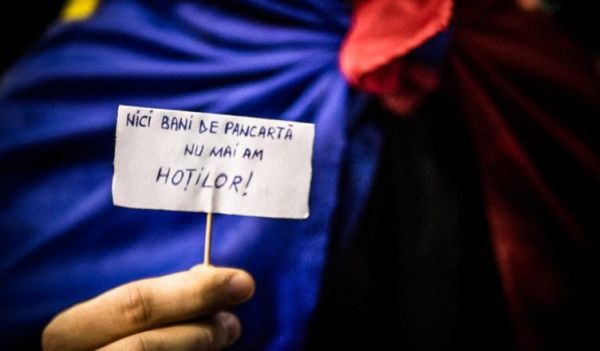 NICI BANI DE PANCARTĂ
NU MAI AM
HOȚILOR!